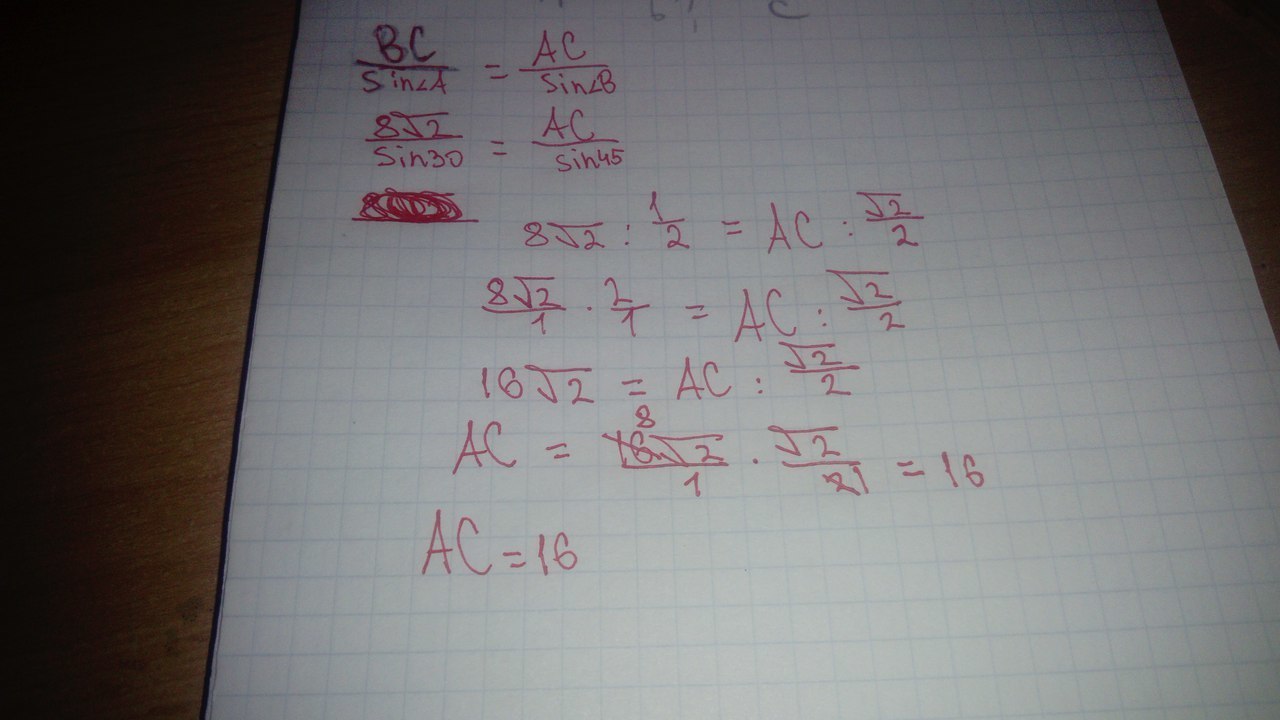 BC/Sin∠A = AC/Sin∠B
8√2/Sin30 = AC/sin45
8√2 : 1/2 = AC : √2/2
8√2/1 · 2/1 = AC : √2/2
16√2 = AC : √2/2
8
AC = 16√2/1 · √2/21 = 16
AC = 16